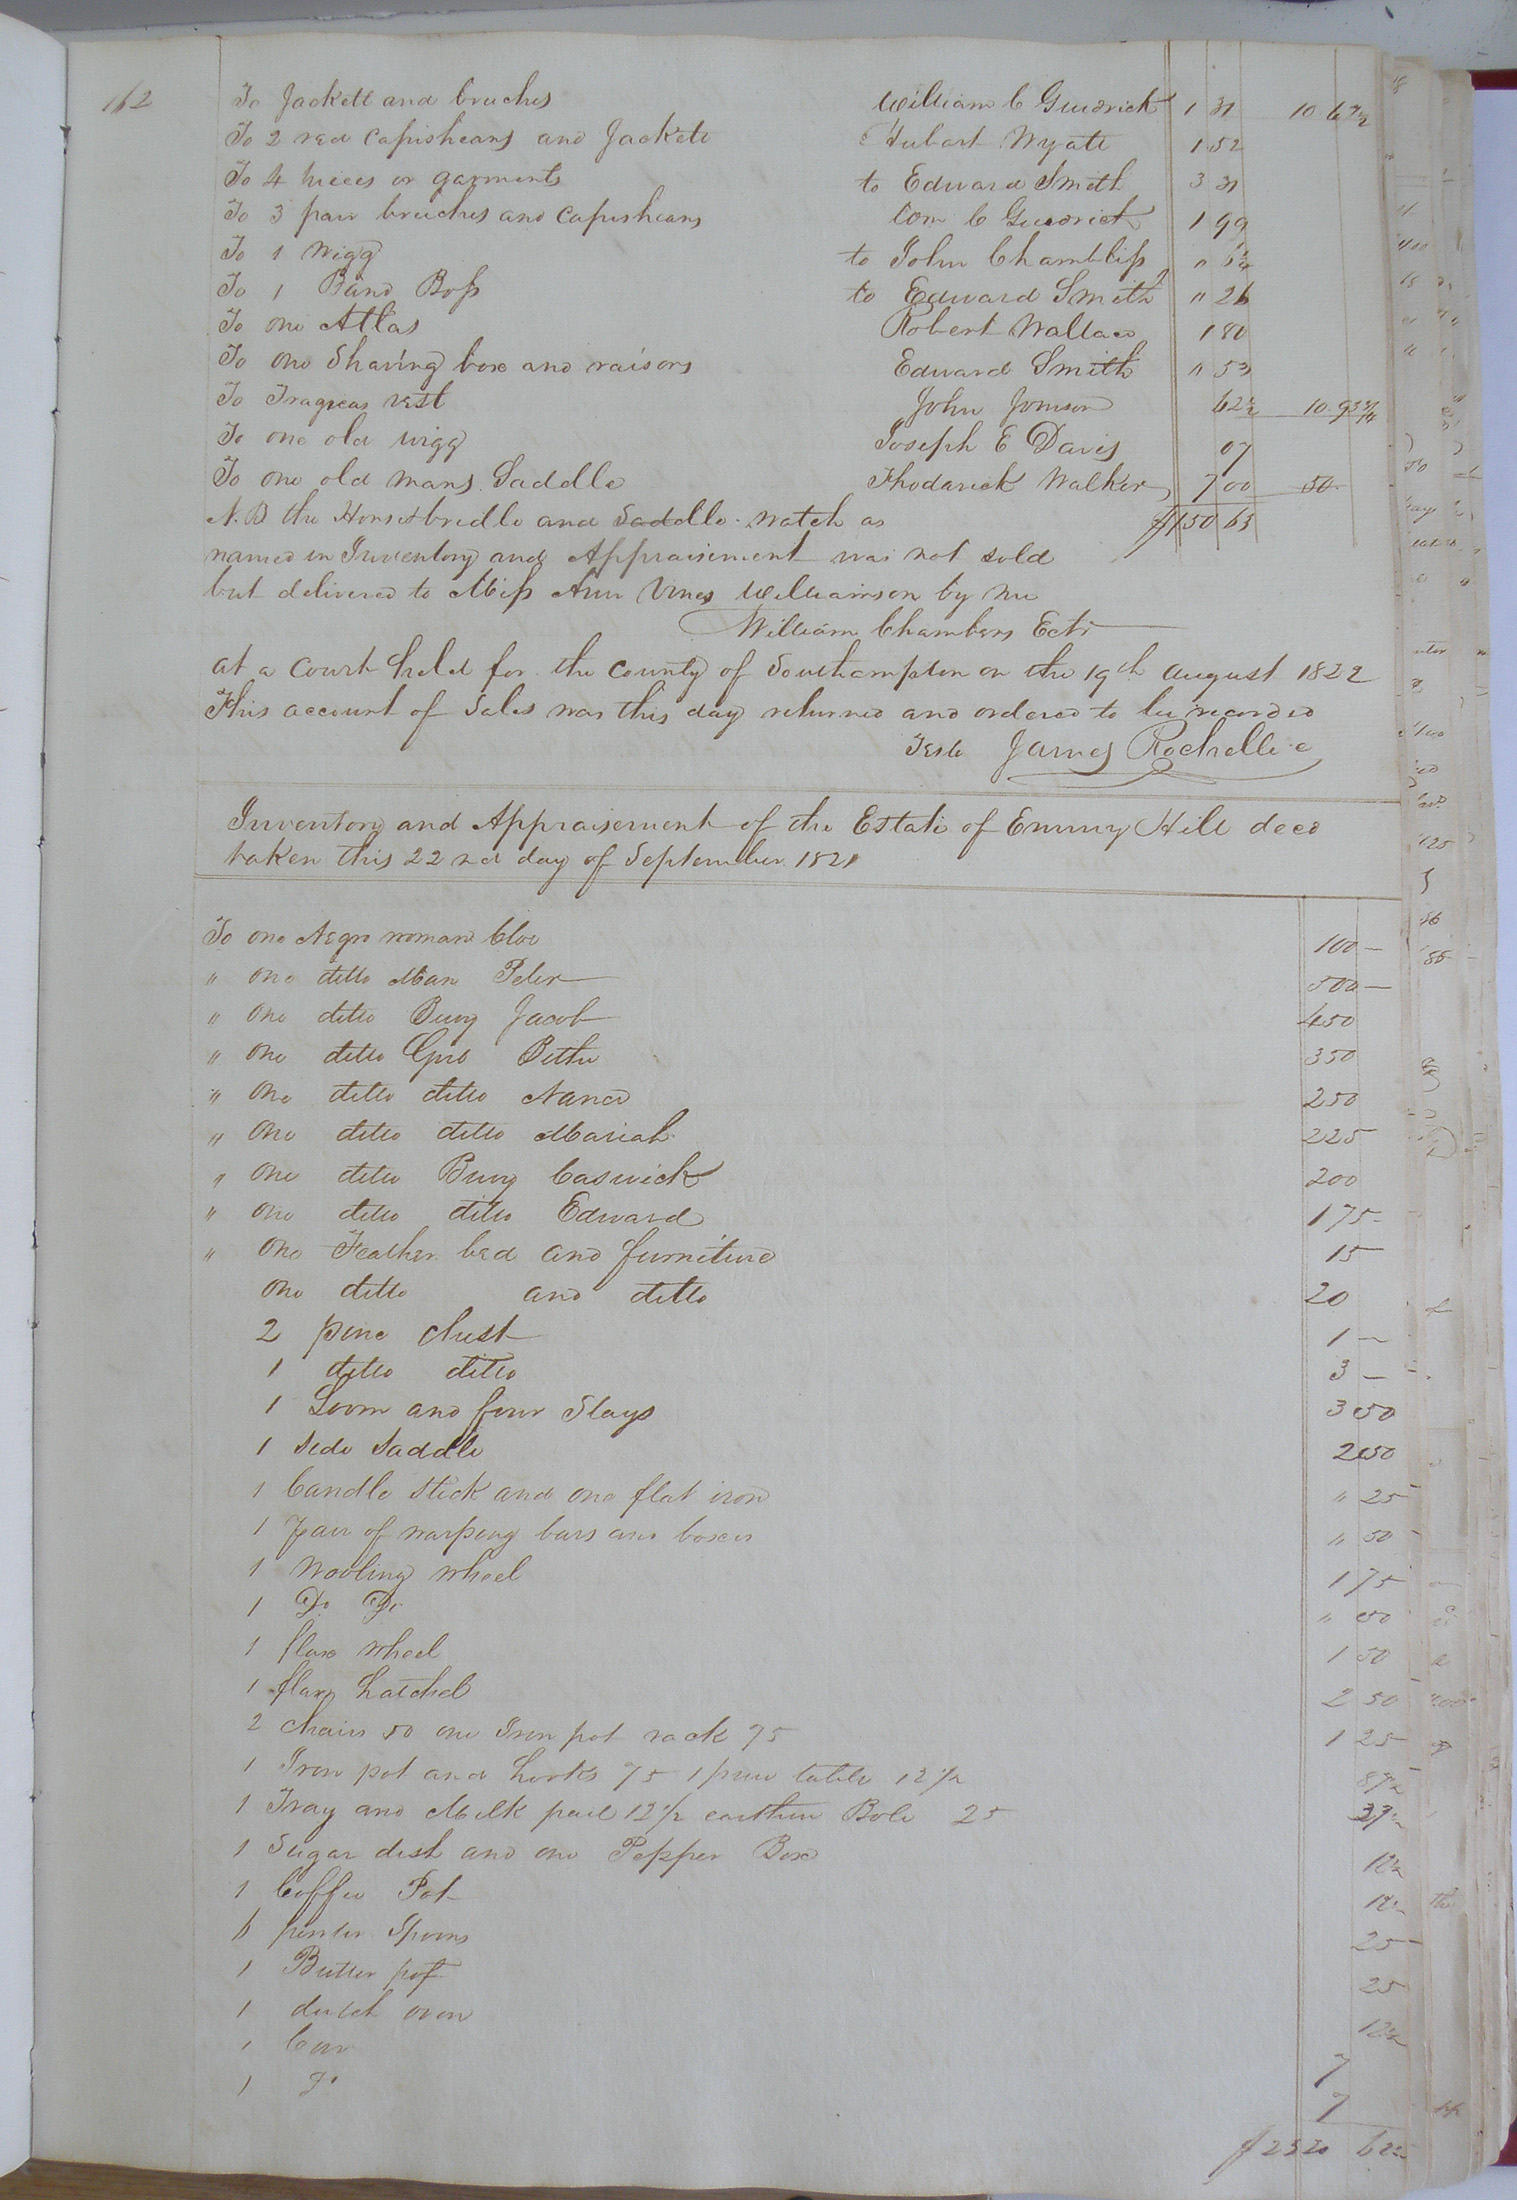 162
To Jackett and bruches William C Gwdrick 1 31 10.67 1/2
To 2 red capishears and Jackets Hubart Wyatt 1 52
To 4 pieces or garments to Edward Smith 3 31
To 3 pair bruches and capishears Wm C Gwdrick 1 99
To 1 Wigg to John Chambliss " 6 1/4
To 1 Band Box to Edward Smith " 26
To one Atlas Robert Wallace 1 80
To one Shaving box and raisors Edward Smith " 53
To vest John 62 1/2 10.93 3/4
To one old wigg Joseph E Davis 07
To one old mans Saddle Thodarick Walker 7 00 50
N.B the Horse bridle and Saddle watch as $150 63
named in Inventory and Appraisement was not sold
but delivered to Miss Ann Vines Williamson by me
William Chambers Ectr
at a Court held for the county of Southampton on the 19th august 1822
This account of Sales was this day returned and ordered to be recorded
Teste James Rochelle c
Inventory and Appraisement of the Estate of Emmy Hill decd
taken this 22nd day of September 1821
To one Negro woman Cloe 100 —
" one ditto Man Peter 500 —
" One ditto Buoy Jacob 450
" One ditto Girl Bethe 350
" One ditto ditto Nance 250
" One ditto ditto Mariah 225
" One ditto Buoy Caswick 200
" One ditto ditto Edward 175
" One Feather bed and furniture 15
One ditto and ditto 20
2 pine chest 1 —
1 ditto ditto 3 —
1 Loom and four Slays 3 50
1 Side Saddle 2 50
1 Candle Stick and one flat iron " 25
1 pair of warping bars and boxes " 50
1 Wooling wheel 1 75
1 Do Do " 50
1 flax wheel 1 50
1 flax hatchel 2 50
2 chairs 50 one Iron pot rack 75 1 25
1 Iron pot and hooks 75 1 pine table 12 1/2 87 1/2
1 Tray and Milk pail 12 1/2 earthen Bole 25 37 1/2
1 Sugar dish and one Pepper Box 12 1/2
1 Coffee Pot 12 1/2
6 pewter Spoons 25
1 Butter pot 25
1 dutch oven 12 1/2
1 Cow 7
1 Do 7
$ 2320 62 1/2